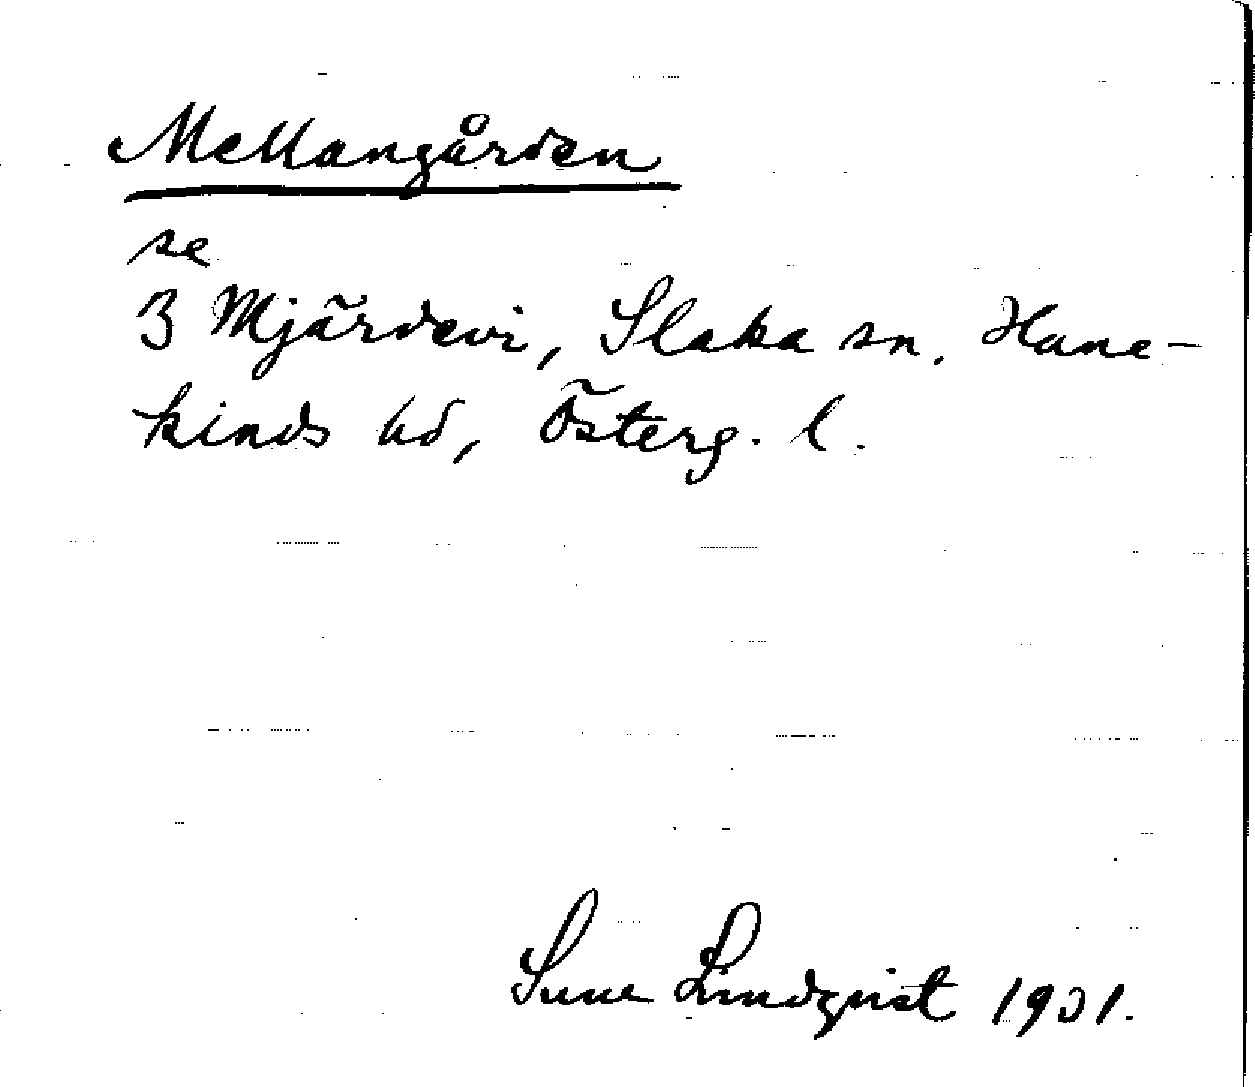 Mellangården
se
3 Mjärdevi, Slaka sn. Hane-
kinds hd, Österg. l.
Sune Lindqvist 1901.